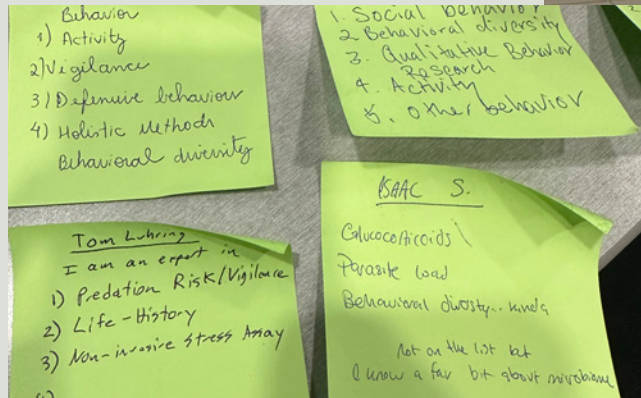 Behavior
1) Activity
2) Vigilance
3) Defensive behaviour
4) Holistic Methods
Behavioral diversity
1. Social behavior
2 Behavioral diversity
3. Qualitative Behavior
Research
4. Activity
5. other behavior
Tom Luhring
I am an expert in
1) Predation Risk/Vigilance
2) Life-History
3) Non-invasive Stress Assay
ISAAC S.
Glucocorticoids
Parasite load
Behavioral divosty.. kinda
Not on the list but
I know a fair bit about microbiome